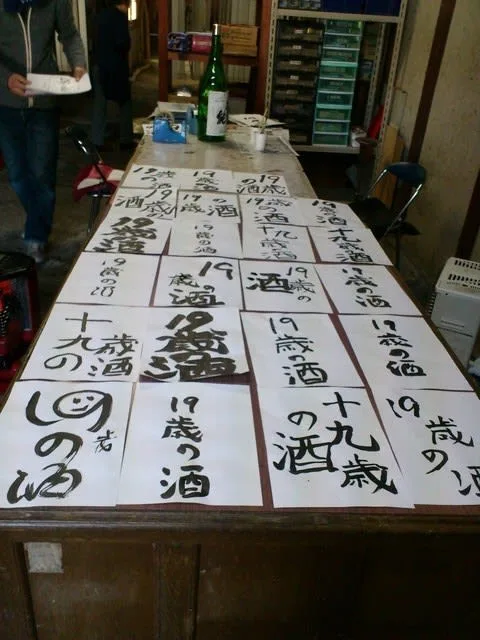 19
歳の酒
19
歳の酒
19歳
の酒
19歳
の酒
19歳
の酒
19歳
の酒
19歳
の酒
19歳
の酒
19歳の酒
十九歳
の酒
十九歳
の酒
19歳の酒
19
歳の酒
19歳の
酒
19歳の酒
十九の
歳酒
19歳酒
19歳の酒
19歳の酒
19歳
の酒
19歳の酒
十九歳
の酒
19歳の酒